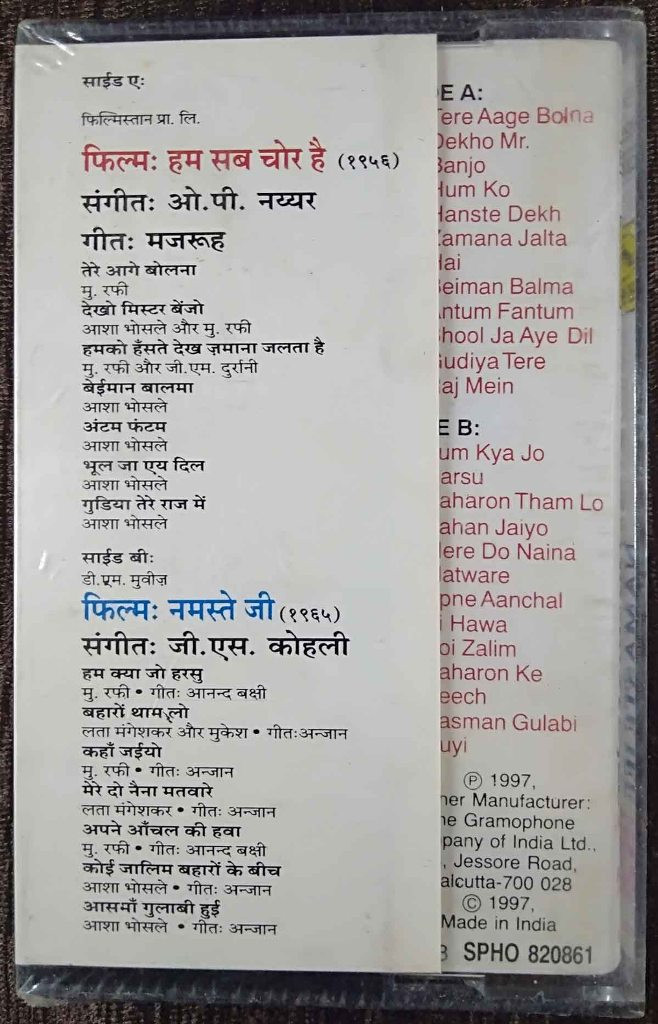 साईड एः
फिल्मिस्तान प्रा. लि.
फिल्मः हम सब चोर है (१९५६)
संगीतः ओ.पी. नय्यर
गीतः मजरूह
तेरे आगे बोलना
मु. रफी
देखो मिस्टर बेंजो
आशा भोसले और मु. रफी
हमको हँसते देख ज़माना जलता है
मु. रफी और जी.एम. दुर्रानी
बेईमान बालमा
आशा भोसले
अंटम फंटम
आशा भोसले
भूल जा एय दिल
आशा भोसले
गुडिया तेरे राज में
आशा भोसले
साईड बीः
डी.एम. मुवीज़
फिल्मः नमस्ते जी (१९६५)
संगीतः जी.एस. कोहली
हम क्या जो हरसु
मु. रफी • गीतः आनन्द बक्षी
बहारों थाम लो
लता मंगेशकर और मुकेश • गीतःअन्जान
कहाँ जईयो
मु. रफी • गीतः अन्जान
मेरे दो नैना मतवारे
लता मंगेशकर • गीतः अन्जान
अपने आँचल की हवा
मु. रफी • गीतः आनन्द बक्षी
कोई जालिम बहारों के बीच
आशा भोसले • गीतः अन्जान
आसमाँ गुलाबी हुई
आशा भोसले • गीतः अन्जान
E A:
Tere Aage Bolna
Dekho Mr.
Banjo
Hum Ko
Hanste Dekh
Zamana Jalta
Hai
Beiman Balma
Antum Fantum
Bhool Ja Aye Dil
Gudiya Tere
Raj Mein
E B:
um Kya Jo
arsu
aharon Tham Lo
ahan Jaiyo
ere Do Naina
atware
pne Aanchal
i Hawa
oi Zalim
aharon Ke
eech
asman Gulabi
uyi
Ⓟ 1997,
ner Manufacturer:
ne Gramophone
pany of India Ltd.,
, Jessore Road,
alcutta-700 028
© 1997,
Made in India
SPHO 820861